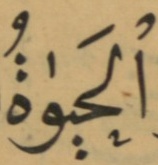 اُلحَيٰوةُ